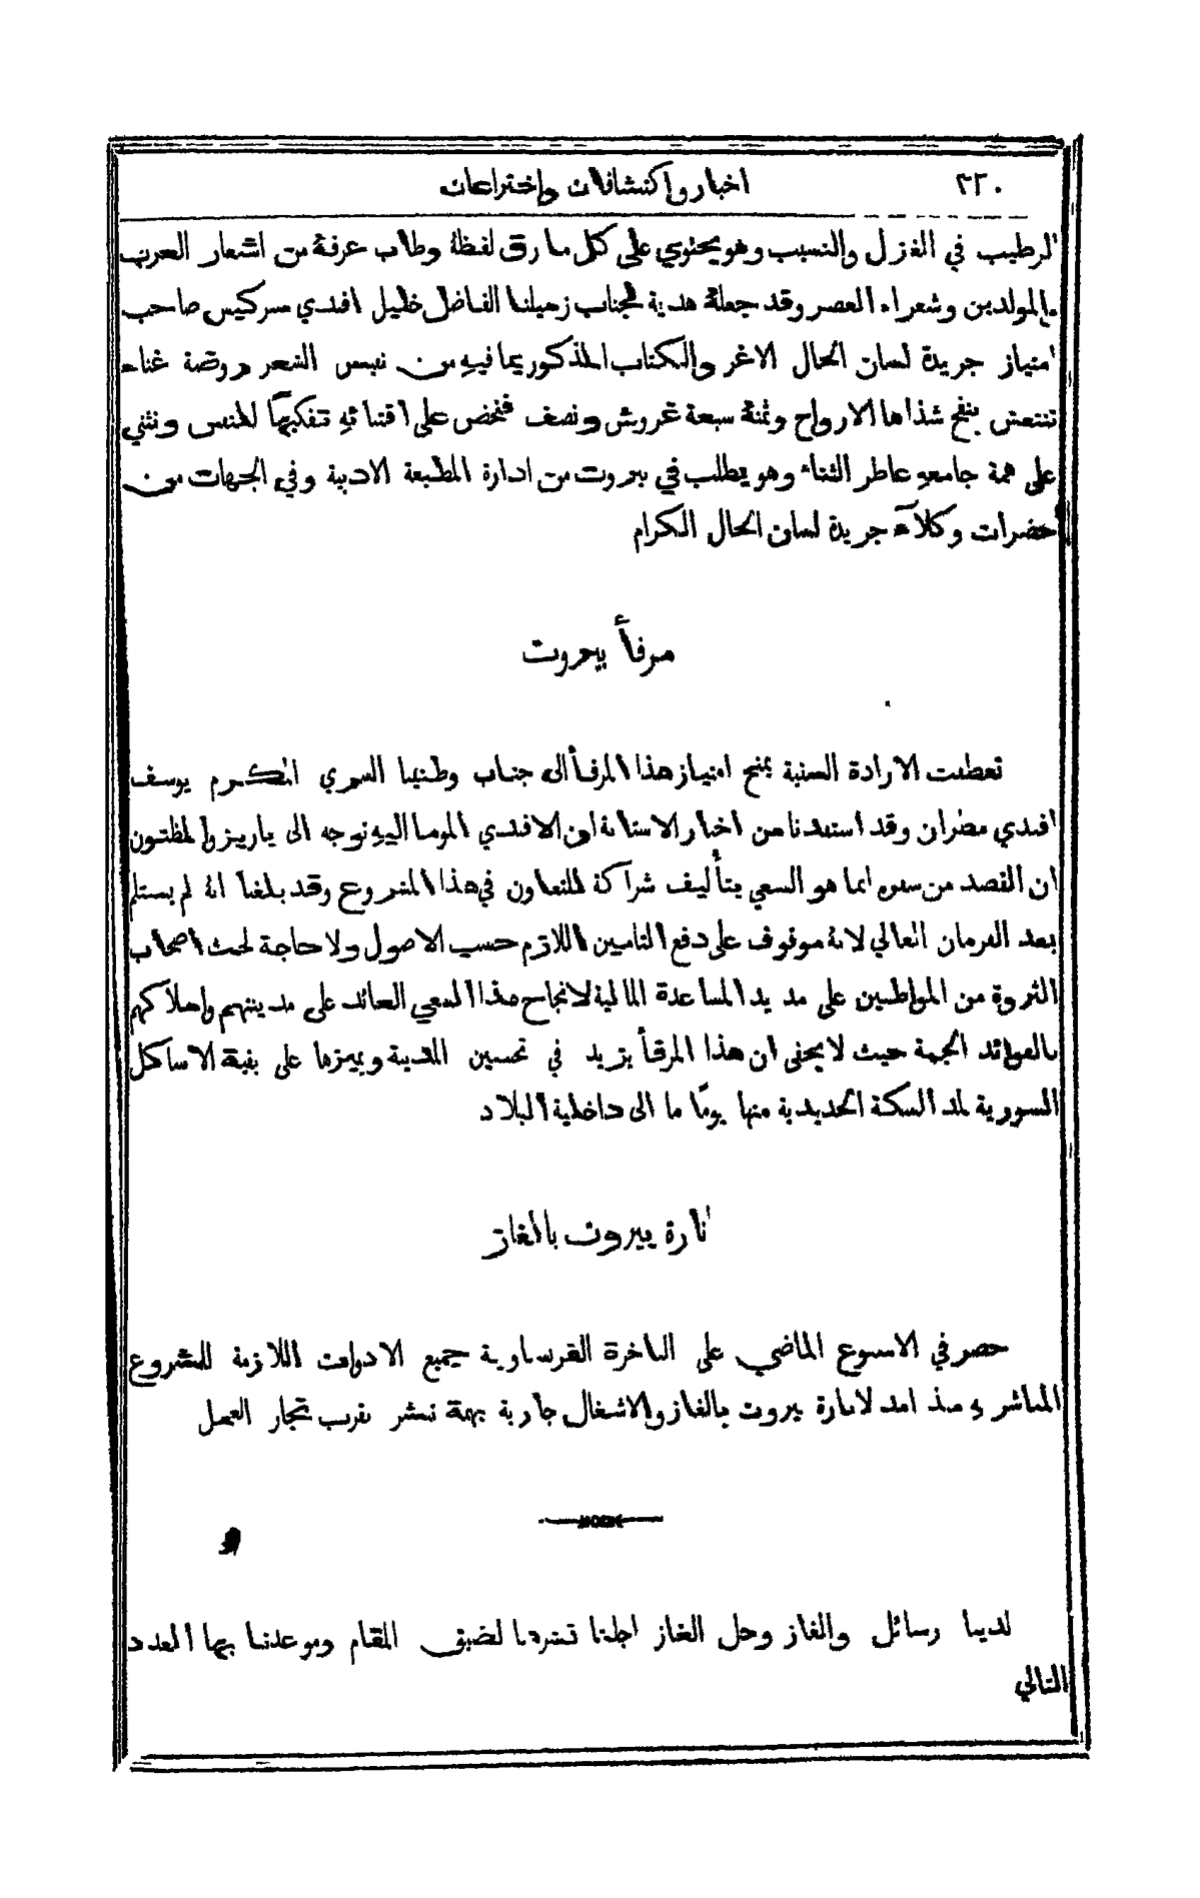 ٢٢٠ اخبار واكتشافات واختراعات
الرطيب في الغزل والنسيب وهو يحتوي على كل ما رق لفظهُ وطاب عرفهُ من اشعار العرب
والمولدين وشعراء العصر وقد جعلهُ هدية لجناب زميلنا الفاضل خليل افندي سركيس صاحب
امتياز جريدة لسان الحال الاغر والكتاب المذكور بما فيهِ من نفيس الشعر روضة غناء
تنتعش بنفح شذاها الارواح وثمنهُ سبعة غروش ونصف فنحض على اقتنائهِ تفكيهًا للنفس ونثني
على همة جامعهِ عاطر الثناء وهو يطلب في بيروت من ادارة المطبعة الادبية وفي الجهات من
حضرات وكلآء جريدة لسان الحال الكرام
مرفأ بيروت
تعطفت الارادة السنية بمنح امتياز هذا المرفأ الى جناب وطنينا السري المكرم يوسف
افندي مطران وقد استفدنا من اخبار الاستانة ان الافندي الموما اليهِ توجه الى باريز والمظنون
ان القصد من سفره انما هو السعي بتأليف شراكة للتعاون في هذا المشروع وقد بلغنا انهُ لم يستلم
بعد الفرمان العالي لانهُ موقوف على دفع التامين اللازم حسب الاصول ولا حاجة لحث اصحاب
الثروة من المواطنين على مد يد المساعدة المالية لانجاح هذا السعي العائد على مدينتهم واملاكهم
بالعوائد الجمة حيث لا يخفى ان هذا المرفأ يزيد في تحسين المدينة ويميزها على بقية الاساكل
السورية لمد السكة الحديدية منها يومًا ما الى داخلية البلاد
انارة بيروت بالغاز
حضر في الاسبوع الماضي على الباخرة الفرنساوية جميع الادوات اللازمة للمشروع
المباشر بهِ منذ امد لانارة بيروت بالغاز والاشغال جارية بهمة تبشر بقرب نجاز العمل
لدينا رسائل والغاز وحل الغاز اجلنا نشرها لضيق المقام وموعدنا بها العدد
التالي